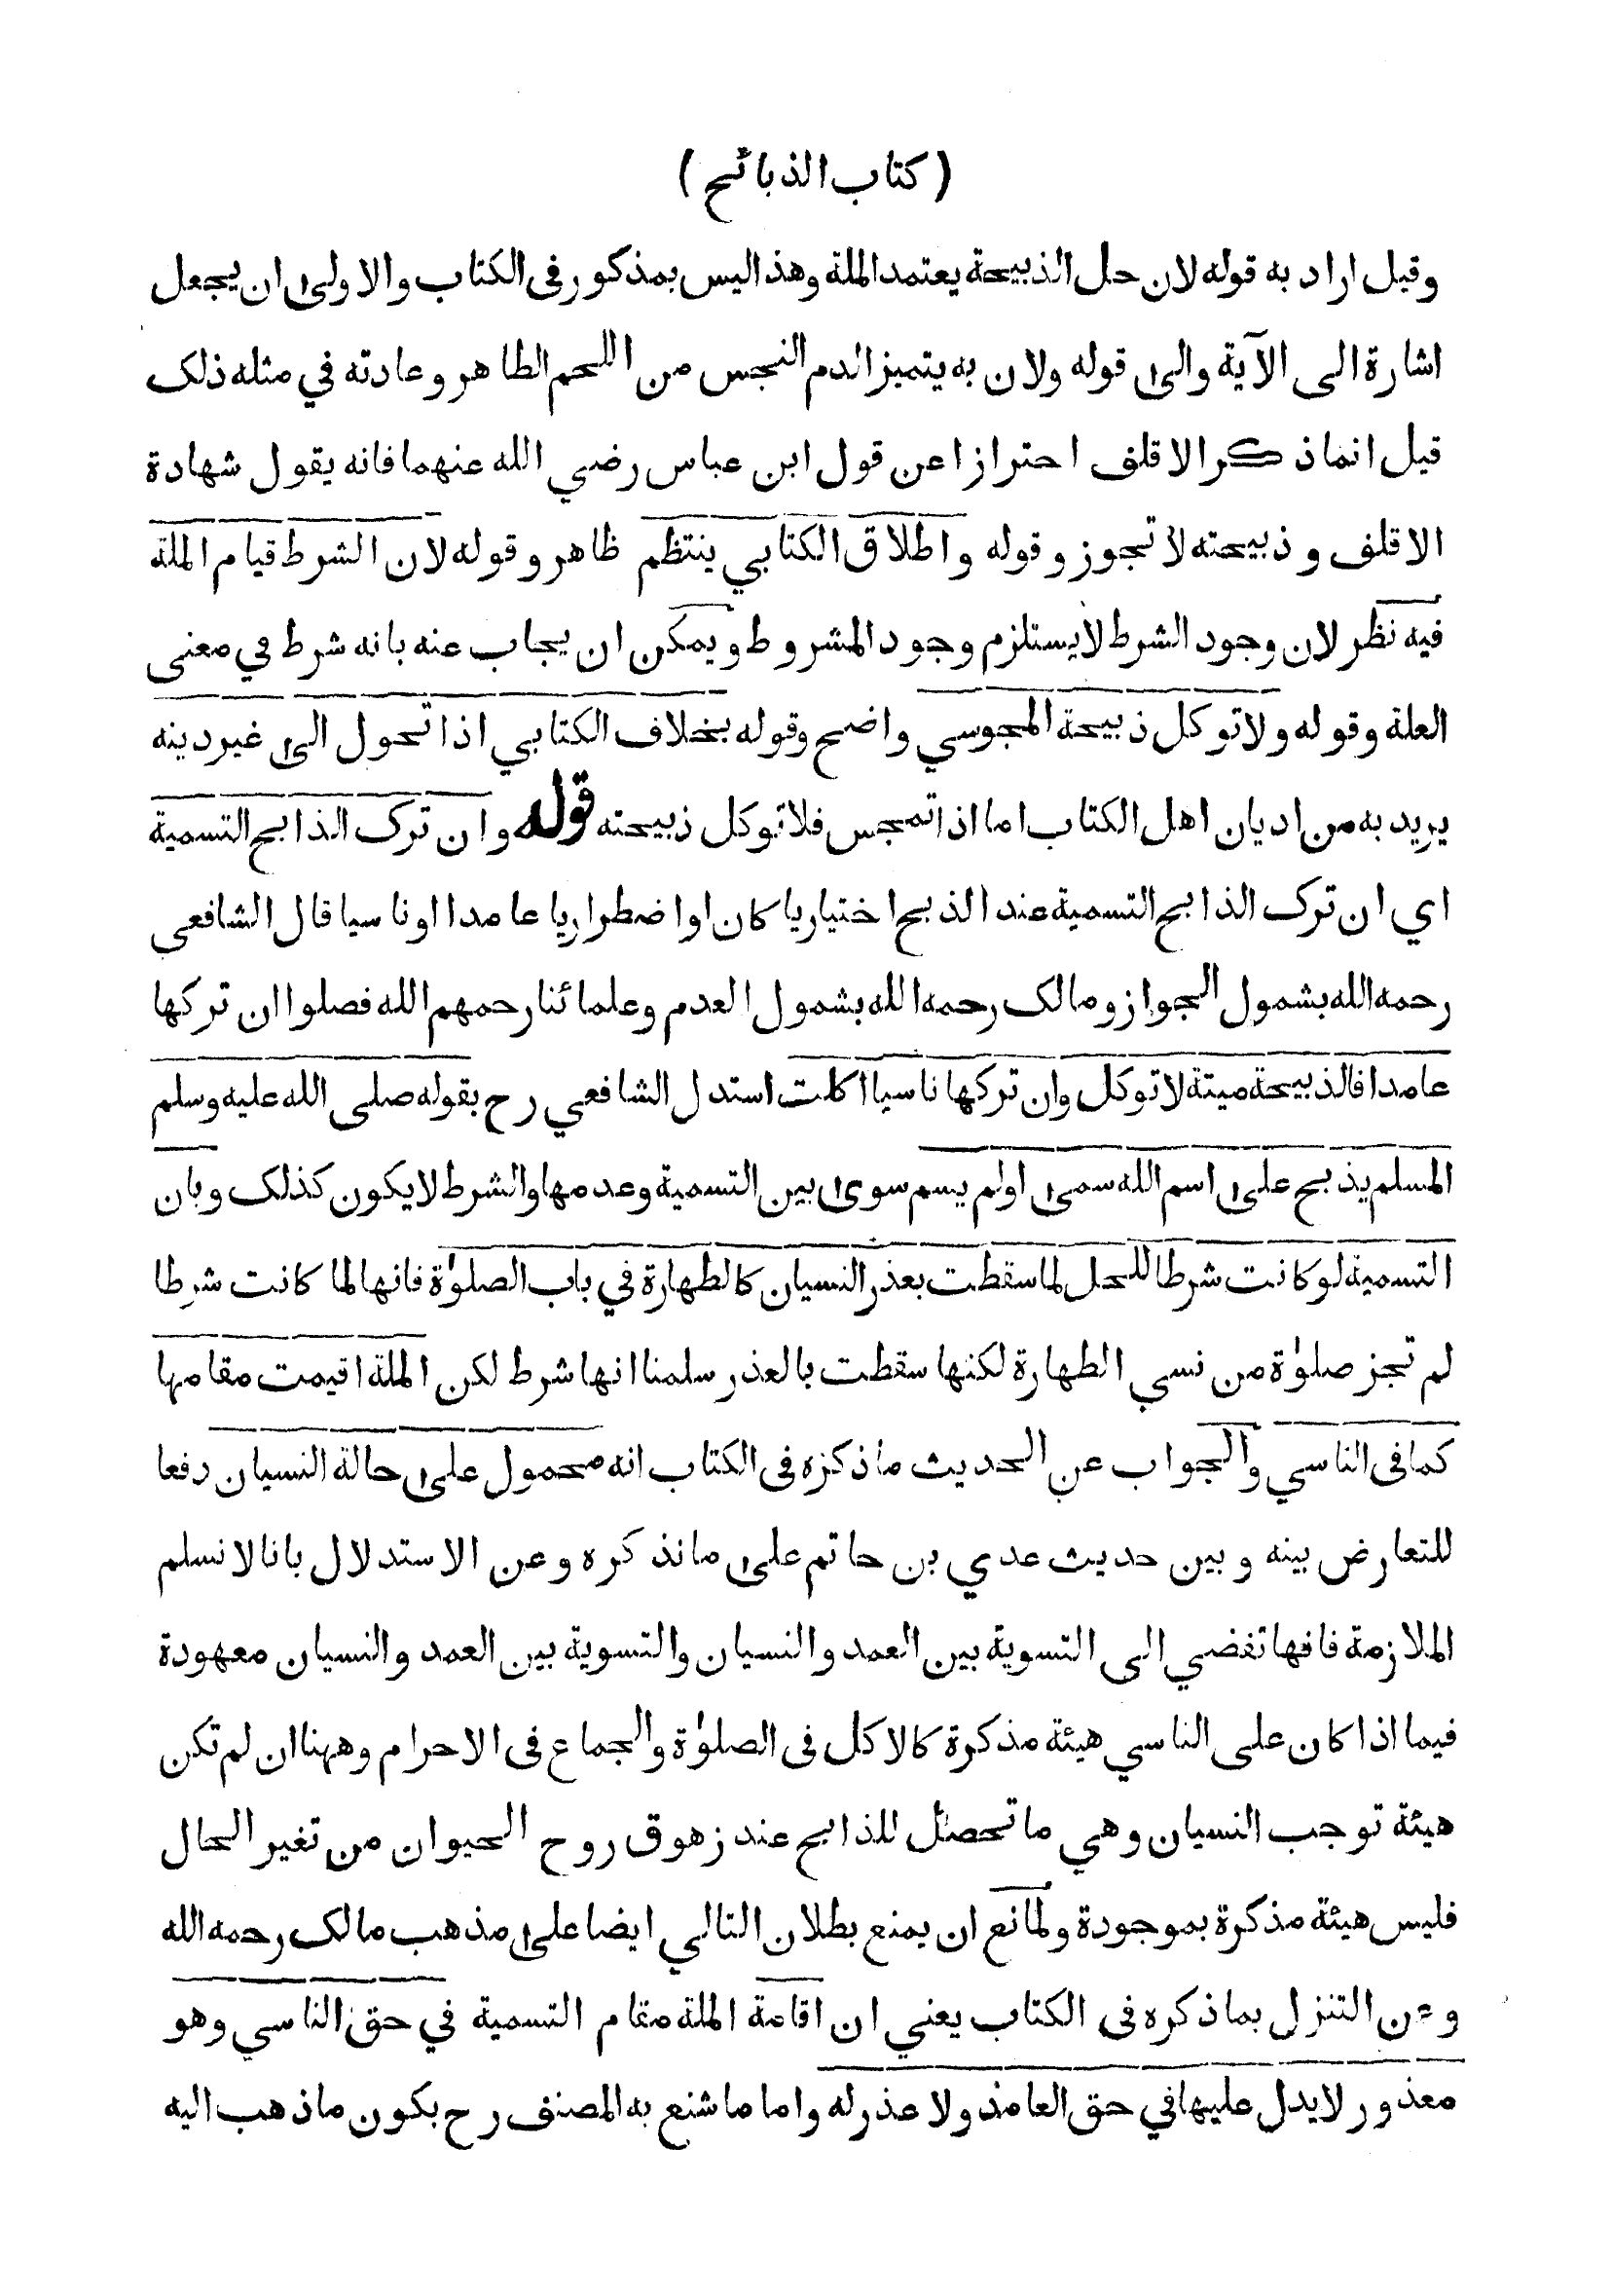 ( كتاب الذبائح )
وقيل اراد به قوله لان حل الذبيحة يعتمد الملة وهذا ليس بمذكور في الكتاب والاولى ان يجعل
اشارة الى الآية والى قوله ولان به يتميز الدم النجس من اللحم الطاهر وعادته في مثله ذلك
قيل انما ذكر الاقلف احترازا عن قول ابن عباس رضي الله عنهما فانه يقول شهادة
الاقلف و ذبيحته لا تجوز و قوله واطلاق الكتابي ينتظم ظاهر و قوله لان الشرط قيام الملة
فيه نظر لان وجود الشرط لا يستلزم وجود المشروط ويمكن ان يجاب عنه بانه شرط في معنى
العلة وقوله ولا توكل ذبيحة المجوسي واضح وقوله بخلاف الكتابي اذا تحول الى غير دينه
يريد به من اديان اهل الكتاب اما اذا تمجس فلا توكل ذبيحته قوله وان ترك الذابح التسمية
اي ان ترك الذابح التسمية عند الذبح اختياريا كان او اضطراريا عامدا او ناسيا قال الشافعي
رحمه الله بشمول الجواز ومالك رحمه الله بشمول العدم وعلمائنا رحمهم الله فصلوا ان تركها
عامدا فالذبيحة ميتة لا توكل وان تركها ناسيا اكلت استدل الشافعي رح بقوله صلى الله عليه وسلم
المسلم يذبح على اسم الله سمى اولم يسم سوى بين التسمية وعدمها والشرط لا يكون كذلك وبان
التسمية لو كانت شرطا للحل لما سقطت بعذر النسيان كالطهارة في باب الصلوٰة فانها لما كانت شرطا
لم تجز صلوٰة من نسي الطهارة لكنها سقطت بالعذر سلمنا انها شرط لكن الملة اقيمت مقامها
كما في الناسي والجواب عن الحديث ما ذكره في الكتاب انه محمول على حالة النسيان دفعا
للتعارض بينه وبين حديث عدي بن حاتم على ما نذكره وعن الاستدلال بانا لا نسلم
الملازمة فانها تفضي الى التسوية بين العمد والنسيان والتسوية بين العمد والنسيان معهودة
فيما اذا كان على الناسي هيئة مذكرة كالاكل في الصلوٰة والجماع في الاحرام وههنا ان لم تكن
هيئة توجب النسيان وهي ما تحصل للذابح عند زهوق روح الحيوان من تغير الحال
فليس هيئة مذكرة بموجودة ولمانع ان يمنع بطلان التالي ايضا على مذهب مالك رحمه الله
وعن التنزل بما ذكره في الكتاب يعني ان اقامة الملة مقام التسمية في حق الناسي وهو
معذور لا يدل عليها في حق العامد ولا عذر له واما ما شنع به المصنف رح بكون ما ذهب اليه